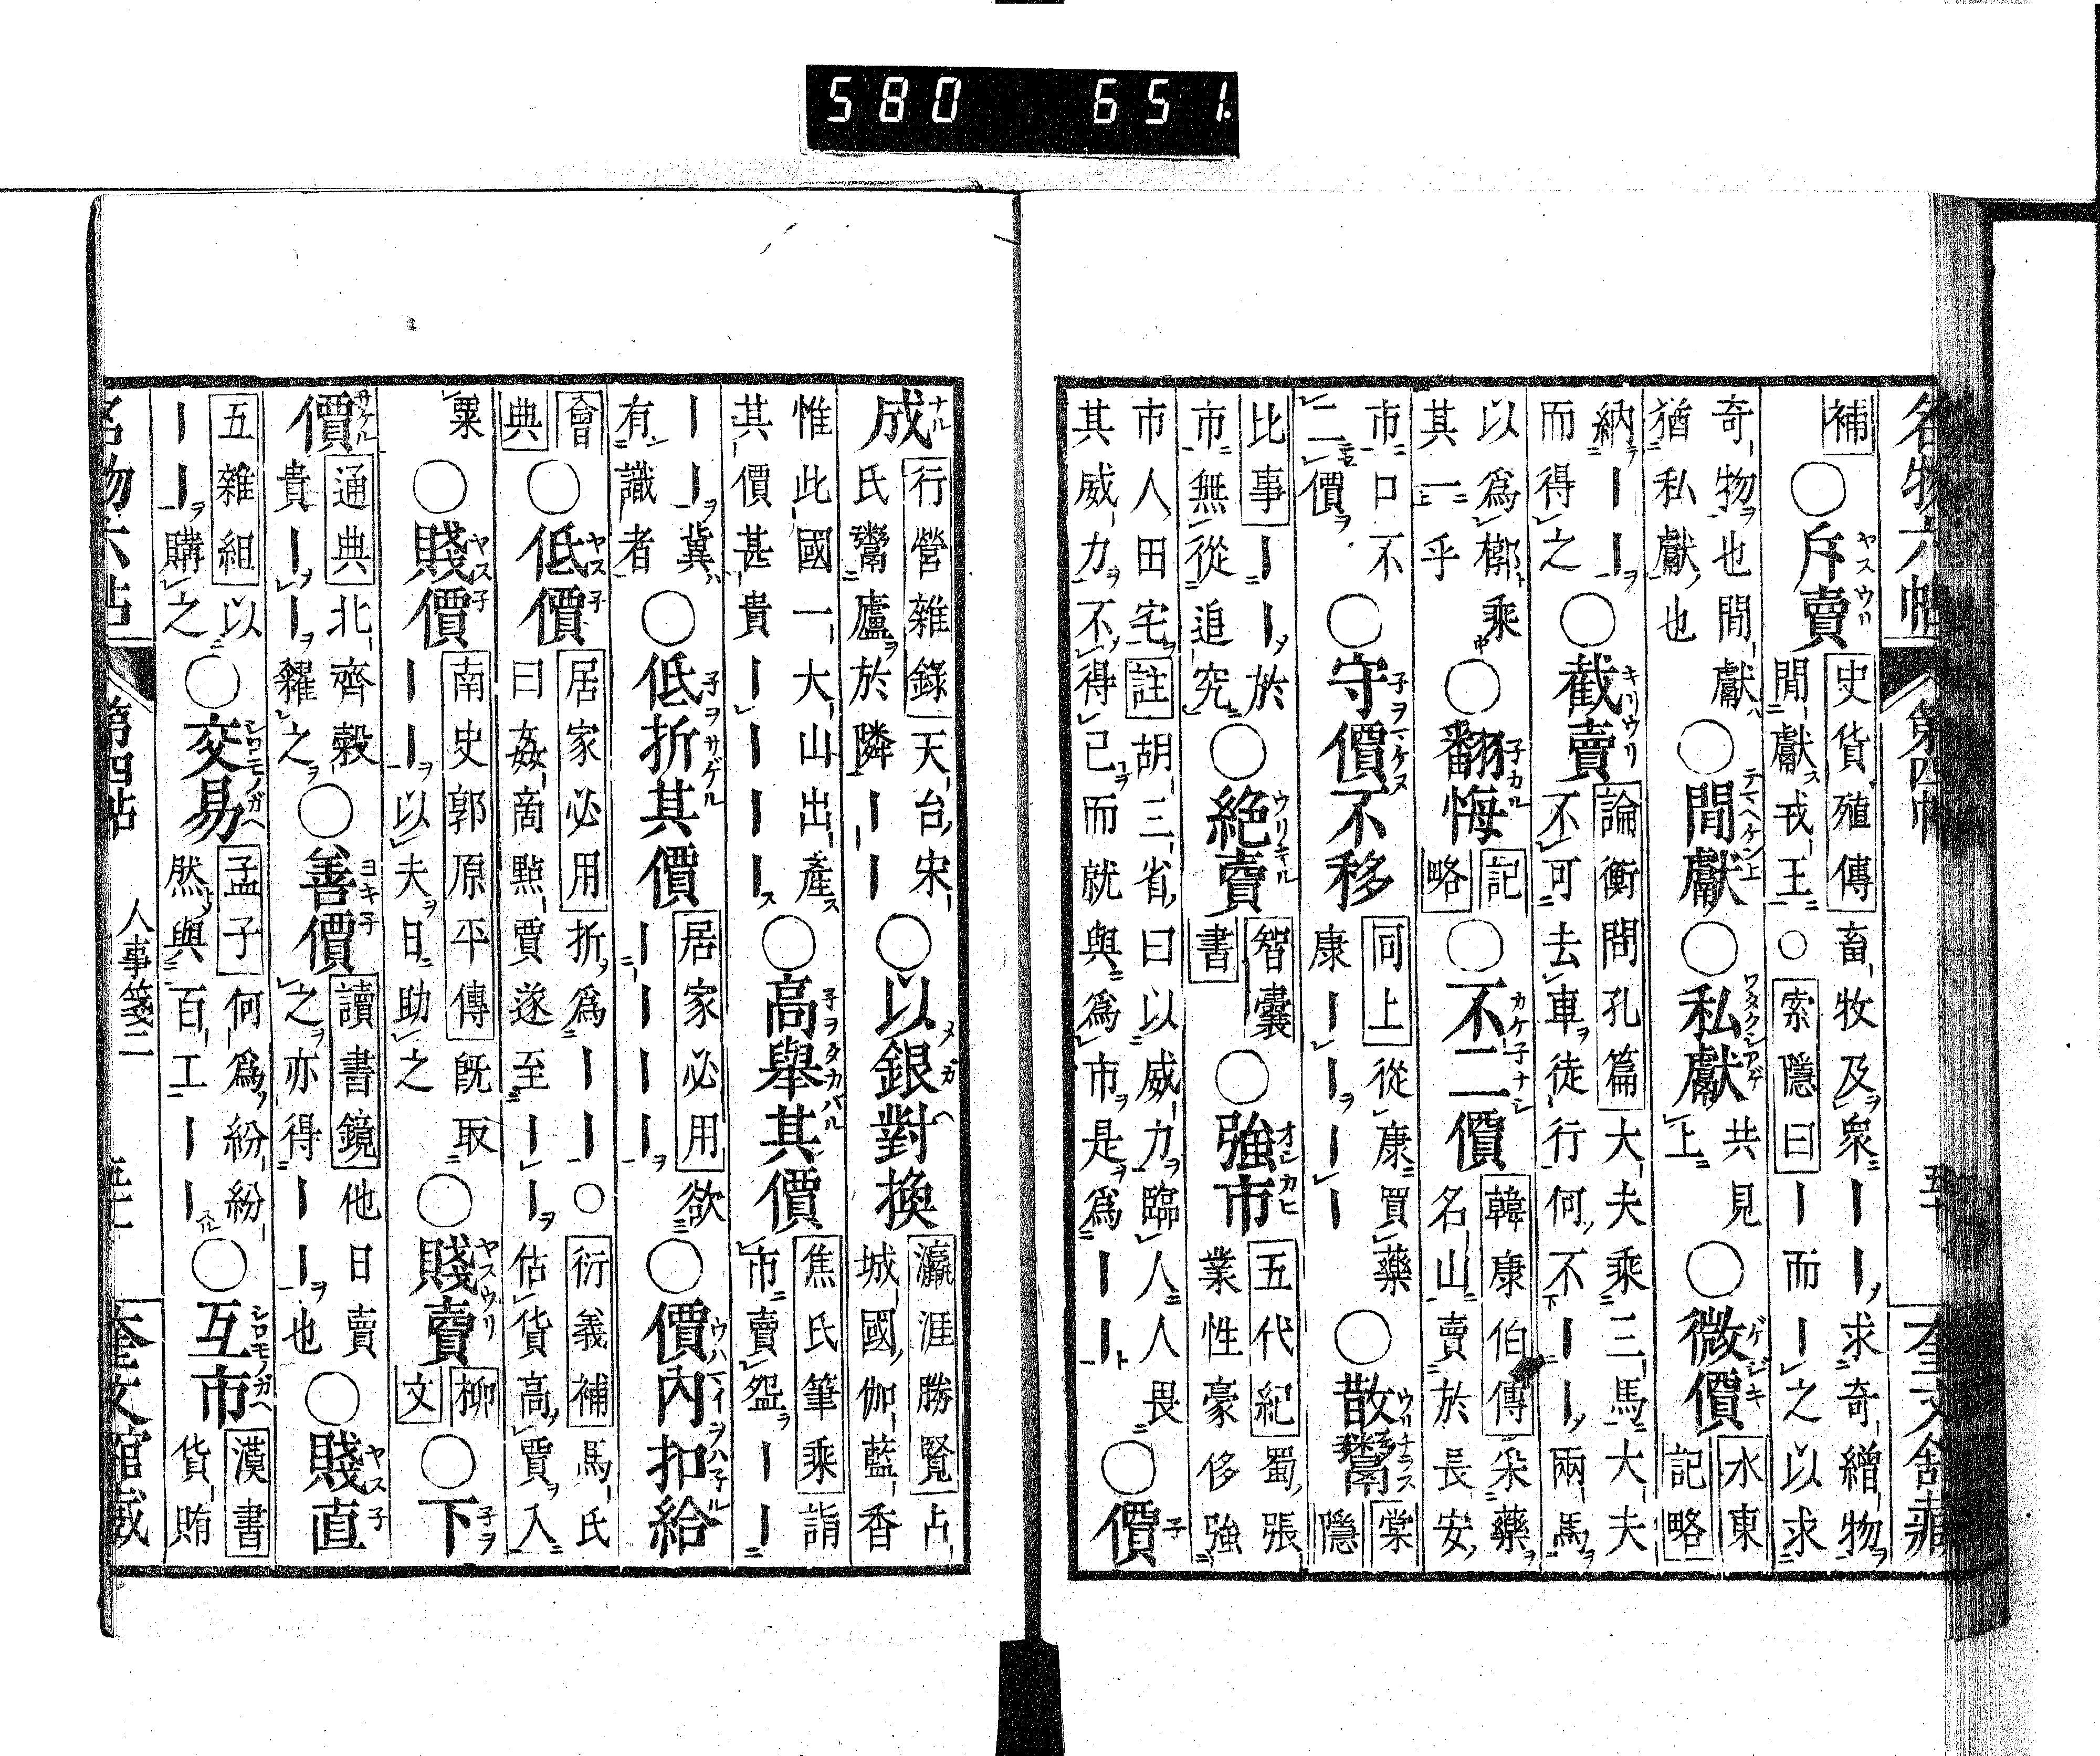 580 651
名物六帖 第四帖 五十 奎文舘藏
補 ○斥賣 史貨殖傳 畜牧及衆丨丨求奇繒物
間獻戎王○索隱曰丨而丨之以求
奇物也間獻
猶私獻也
○間獻 ○私獻 共見
上
○微價 水東
記略
納丨丨
而得之
○截賣 論衡問孔篇大夫乘三馬大夫
不可去車徒行何不丨丨兩馬
以爲槨乘
其一乎
○翻悔 記
略
○不二價 韓康伯傳采藥
名山賣於長安
市口不
二價
○守價不移 同上從康買藥
康丨丨丨丨
○散鬻 棠
隱
比事丨丨於
市無從追究
○絶賣 智囊
書
○強市 五代紀蜀張
業性豪侈強
市人田宅註胡三省曰以威力臨人人畏
其威力不得已而就與爲市是爲丨丨
○價
成 行營雜錄天台宋
氏鬻廬於隣丨丨
○以銀對換 瀛涯勝覽占
城國伽藍香
惟此國一大山出產
其價甚貴丨丨丨丨
○高舉其價 焦氏筆乘詣
市賣盌丨丨
丨丨冀
有識者
○低折其價 居家必用欲
丨丨丨丨
○價内扣給
會
典
○低價 居家必用折爲丨丨○衍義補馬氏
曰姦商黠賈遂至丨丨估貨高賈入
粟
○賤價 南史郭原平傳既取
丨丨以夫日助之
○賤賣 柳
文
○下
價 通典北齊穀
貴丨丨糴之
○善價 讀書鏡他日賣
之亦得丨丨也
○賤直
五雜組以
丨丨購之
○交易 孟子何爲紛紛
然與百工丨丨
○互市 漢書
貨賄
名物六帖 第四帖 人事箋二 五十一 奎文舘藏